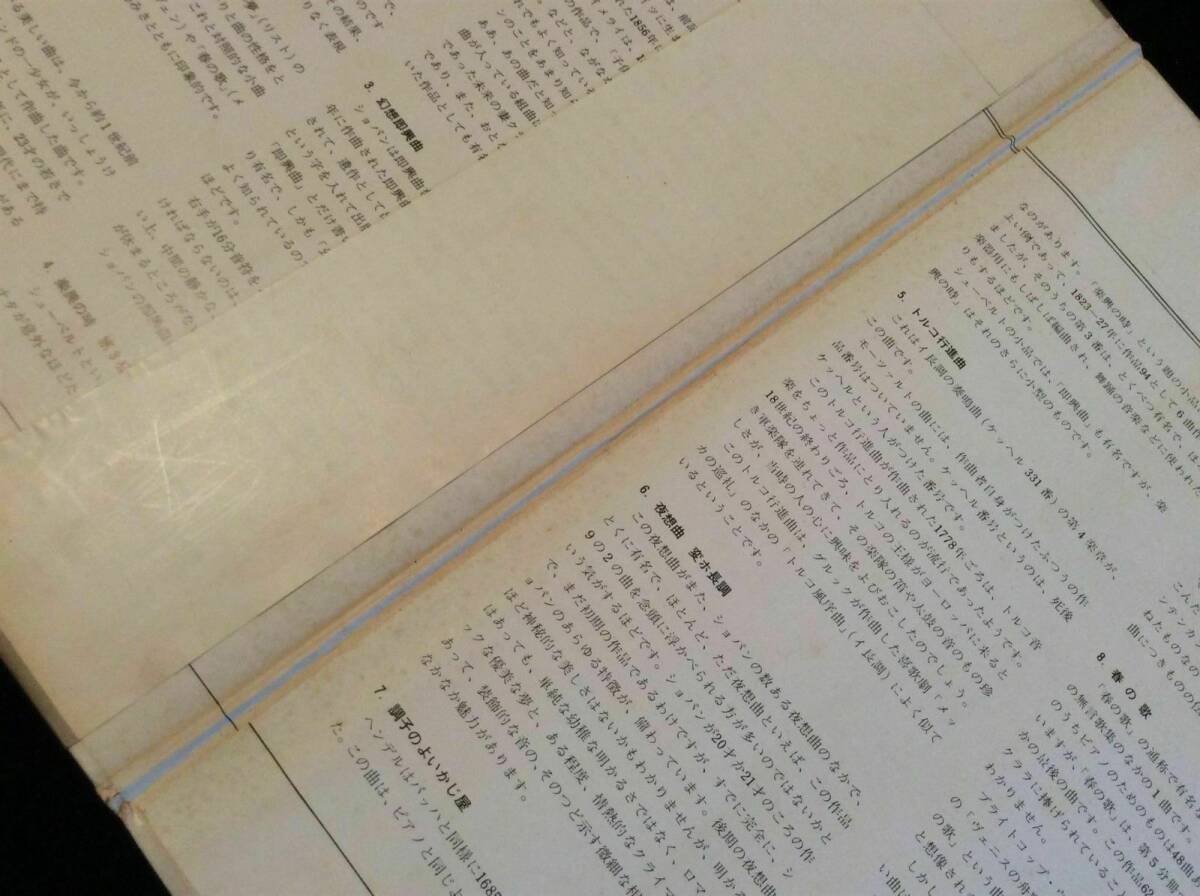 で、
のです
ての結果、
りなく表現
夢」(リスト)の
りと曲の性格をと
これと対照的な小曲
ェン)や「春の歌」(メ
みさとともに印象的です。
る美しい曲は、今から約1世紀前
ンドの一少女が、いっしょうけ
として作曲した曲です。
に、23才の若さで
れた1856年
の作品で、「子の
メライは、
などと、ながなが
れでもよく知ってい
シのことをあまり知
あ、あの曲だと知
曲が入っている組曲
であった未来の妻ク
であり、また、おと
いた作品としても有
3. 幻想即興曲
ショパンは即興曲
年に作曲された即興曲
されて、遺作としても
という字を入れて出版
「即興曲」とだけ書い
り有名で、しかも
よく知られているの
ほどです。
右手が16分音符を
ければならないのは
い上、中間の静かな
が休まるところがな
ショパンの
4. 楽興の時 第3
シューベルトとい
ナタが意外なほどた
なのがあります。「楽興の時」という題の小品
よい例であって、1823—27年に作品94として6曲作
ましたが、そのうちの第3番は、とくべつ有名で、
楽器用にもしばしば編曲され、舞踊の音楽などに使われた
りもするほどです。
シューベルトの小品では、「即興曲」も有名ですが、楽
興の時」はそれのさらに小型のものです。
5. トルコ行進曲
これはイ長調の奏鳴曲(ケッヘル331番)の第4楽章が、
この曲です。
モーツァルトの曲には、作曲者自身がつけたふつうの作
品番号はついていません。ケッヘル番号というのは、死後
ケッヘルという人がつけた番号です。
このトルコ行進曲が作曲された1778年ごろは、トルコ音
楽をちょっと作品にとり入れるのが流行であったようです。
18世紀の終わりごろ、トルコの王様がヨーロッパに来ると
き軍楽隊を連れてきて、その楽隊の笛や太鼓の音のもの珍
しさが、当時の人の心に興味をよびおこしたのでしょう。
このトルコ行進曲は、グルックが作曲した喜歌劇「メッ
カの巡礼」のなかの「トルコ風序曲」(イ長調)によく似て
いるということです。
6. 夜想曲 変ホ長調
この夜想曲がまた、ショパンの数ある夜想曲のなかで、
とくに有名で、ほとんど、ただ夜想曲といえば、この作品
9の2の曲を念頭に浮かべられる方が多いのではないかと
いう気がするほどです。ショパンが20才か21才のころの作
で、まだ初期の作品であるわけですが、すでに完全に、シ
ョパンのあらゆる特徴が、備わっています。後期の夜想曲
ほど神秘的な美しさはないかもわかりませんが、明か
はあっても、単純な幼稚な明かるさではなく、ロマ
ックな優美な夢と、ある程度、情熱的なクライマ
あって、装飾的な音の、そのつど示す微細な
なかなか魅力があります。
7. 調子のよいかじ屋
ヘンデルはバッハと同様に1685
た。この曲は、ピアノと同じよ
こんこ
ンテンカ
ねたものな
曲につきものの
8. 春の歌
「春の歌」の通称で有名な
の無言歌集のなかの1曲です
のうちピアノのためのものは48曲あ
いますが、「春の歌」は、第5分冊
かの最後の曲です。この作品62
クララに捧げられているこ
わかりません。
ブライトコップ・
「ヴェニスの舟
の歌」という
と想像され
しかし
い曲